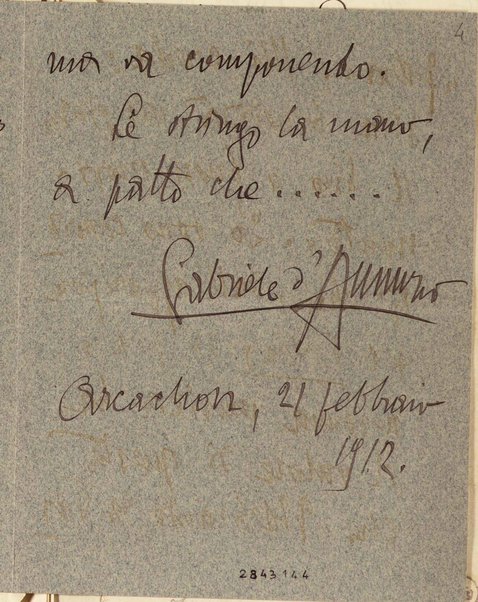 4
ma va componendo.
Le stringo la mano,
a patto che......
Gabriele d'Annunzio
Arcachon, 21 febbraio
1912.
2843144